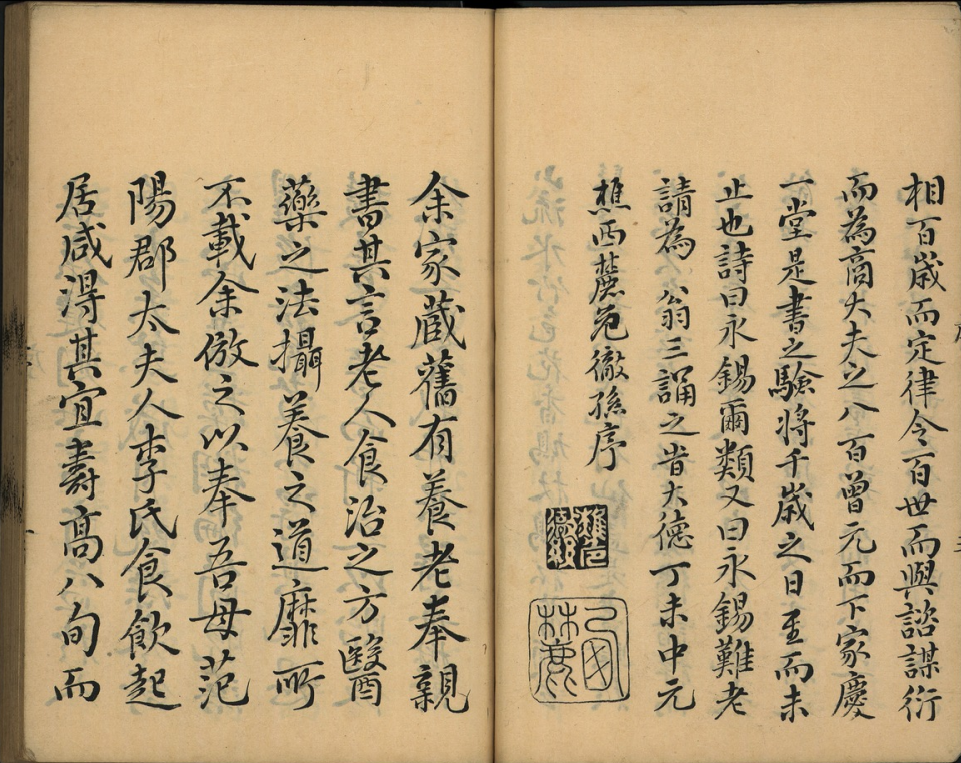 相百歲而定律令百世而與諮謀衍
而為商大夫之八百曾元而下家慶
一堂是書之驗將千歲之日至而未
止也詩曰永錫爾類又曰永錫難老
請為翁三誦之旹大德丁未中元
樵西麓危徹孫序
余家蔵舊有養老奉親
書其言老人食治之方醫
藥之法攝養之道靡所
不載余倣之以奉吾母范
陽郡太夫人李氏食飲起
居咸得其宜壽髙八旬而